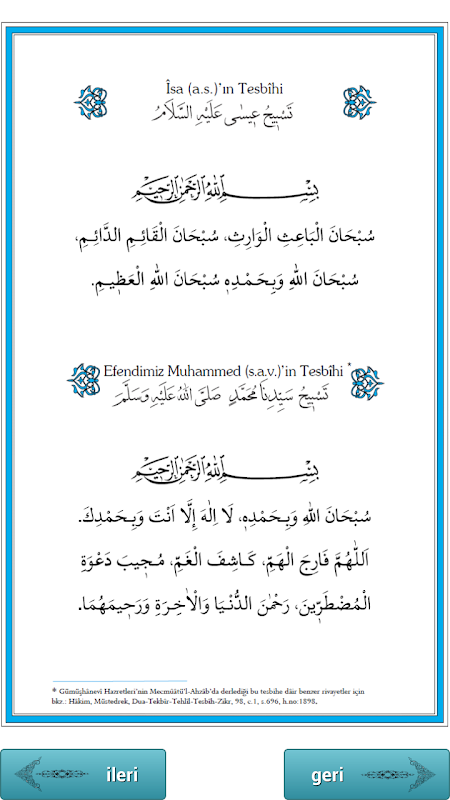 Îsa (a.s.)'ın Tesbîhi
تَسْبِيحُ عِيسٰى عَلَيْهِ السَّلَامُ
بِسْمِ اللّٰهِ الرَّحْمٰنِ الرَّحِيمِ
سُبْحَانَ الْبَاعِثِ الْوَارِثِ، سُبْحَانَ الْقَائِمِ الدَّائِمِ،
سُبْحَانَ اللّٰهِ وَبِحَمْدِهِ سُبْحَانَ اللّٰهِ الْعَظِيمِ.
Efendimiz Muhammed (s.a.v.)'in Tesbîhi *
تَسْبِيحُ سَيِّدِنَا مُحَمَّدٍ صَلَّى اللّٰهُ عَلَيْهِ وَسَلَّمَ
بِسْمِ اللّٰهِ الرَّحْمٰنِ الرَّحِيمِ
سُبْحَانَ اللّٰهِ وَبِحَمْدِهِ، لَا اِلٰهَ إِلَّا اَنْتَ وَبِحَمْدِكَ.
اَللّٰهُمَّ فَارِجَ الْهَمِّ، كَاشِفَ الْغَمِّ، مُجِيبَ دَعْوَةِ
الْمُضْطَرِّينَ، رَحْمٰنَ الدُّنْيَا وَالْاٰخِرَةِ وَرَحِيمَهُمَا.
* Gümüşhânevî Hazretleri'nin Mecmûâtü'l-Ahzâb'da derlediği bu tesbihe dâir benzer rivayetler için
bkz.: Hâkim, Müstedrek, Dua-Tekbîr-Tehlîl-Tesbîh-Zikr, 98, c.1, s.696, h.no:1898.
ileri
geri